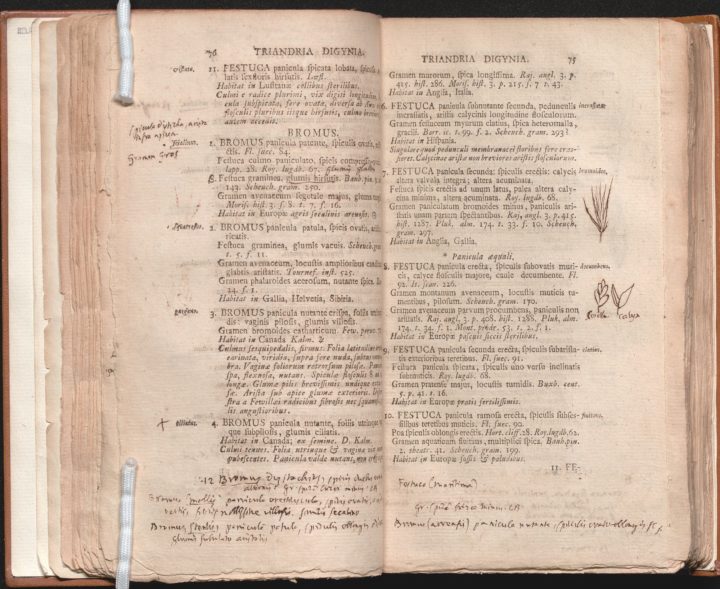 76 TRIANDRIA DIGYNIA.
cristata.
11. FESTUCA panicula spicata lobata, spiculis
laris sexfloris hirsutis. Loefl.
Habitat in Lusitaniæ collibus sterilibus.
Culmi e radice plurimi, vix digiti longitudine,
cula subspicata, fere ovata, diversa ab
flosculis pluribus iisque hirsutis, culmo
autem accedit.
BROMUS.
1. BROMUS panicula patente, spiculis ovatis,
ctis. Fl. suec. 84.
Festuca culmo paniculato, spicis compressis
lapp. 28. Roy. lugdb. 67.
β. Festuca graminea, glumis hirsutis. Bauh. pin.
143. Scheuch. gram. 250.
Gramen avenaceum segetale majus, glumis
Moris. hist. 3. s. 8. t. 7. f. 16.
Habitat in Europæ agris secalinis arenosis.
squarrosus.
2. BROMUS panicula patula, spicis ovatis,
ricatis.
Festuca graminea, glumis vacuis. Scheuch.
t. 5. f. 11.
Gramen avenaceum, locustis amplioribus
glabris aristatis. Tournef. inst. 525.
Gramen phalaroides acerosum, nutante spica.
24. f. 1.
Habitat in Gallia, Helvetia, Sibiria.
purgans.
3. BROMUS panicula nutante crispa, foliis
dis: vaginis pilosis, glumis villosis.
Gramen bromoides catharticum. Few. peruv.
Habitat in Canada Kalm.
Culmus sesquipedalis, firmus. Folia latitudine
carinata, viridia, supra fere nuda, subtus
bra. Vagina foliorum retrorsum pilosa.
spa, flexuosa, nutans. Spiculæ flosculis 8
longæ. Glumæ pilis brevissimis undique
sæ. Arista sub apice glumæ exterioris.
stra a Fewillæi radicibus fibrosis nec
lis angustioribus.
ciliatus.
4. BROMUS panicula nutante, foliis utrinque
que subpilosis, glumis ciliatis.
Habitat in Canada; ex semine. D. Kalm.
Culmi tenues. Folia utrinque & vagina
pubescentes. Panicula valde nutans, non
12 Bromus distachios, spicis
Bromus (mollis) panicula erectiuscula, spicis ovatis,
mollissime villosis. similis secalino
Bromus (sterilis) panicula patula, spiculis oblongis
glumis subulato aristatis
TRIANDRIA DIGYNIA. 75
Gramen murorum, spica longissima. Raj. angl. 3. p.
415. hist. 286. Moris. hist. 3. p. 215. s. 7. t. 43.
Habitat in Anglia, Italia.
6. FESTUCA panicula subnutante secunda, pedunculis
incrassatis, aristis calycinis longitudine flosculorum.
Gramen festuceum myurum elatius, spica heteromalla,
gracili. Barr. ic. t. 99. f. 2. Scheuch. gram. 293?
Habitat in Hispania.
Singulæ quasi pedunculi membranacei floribus fere crassiores.
Calycinæ aristæ non breviores aristis floscularum.
7. FESTUCA panicula secunda; spiculis erectis: calycis bromoides.
altera valvula integra; altera acuminata.
Festuca spicis erectis ad unum latus, palea altera calycina
minima, altera acuminata. Roy. lugdb. 68.
Gramen paniculatum bromoides minus, paniculis aristatis
unam partem spectantibus. Raj. angl. 3. p. 415.
hist. 1287. Pluk. alm. 174. t. 33. f. 10. Scheuch.
gram. 297.
Habitat in Anglia, Gallia.
* Panicula æquali.
8. FESTUCA panicula erecta, spiculis subovatis muticis,
decumbens.
calyce flosculis majore, culmo decumbente. Fl.
92. It. scan. 226.
Gramen montanum avenaceum, locustis muticis tumentibus,
pilosum. Scheuch. gram. 170.
Gramen avenaceum parvum procumbens, paniculis non
aristatis. Raj. angl. 3. p. 408. hist. 1288. Pluk. alm.
174. t. 34. f. 1. Mont. prodr. 53. t. 2. f. 1.
Habitat in Europæ pascuis siccis sterilibus.
9. FESTUCA panicula secunda erecta, spiculis subaristatis
elatior.
exterioribus teretibus. Fl. suec. 91.
Festuca panicula spicata, spiculis uno versu inclinatis
submuticis. Roy. lugdb. 68.
Gramen pratense majus, locustis tumidis. Buxb. cent.
5. p. 41. t. 16.
Habitat in Europæ pratis fertilissimis.
10. FESTUCA panicula ramosa erecta, spiculis subsessilibus
fluitans.
teretibus muticis. Fl. suec. 90.
Poa spiculis oblongis erectis. Hort. cliff. 28. Roy. lugdb. 62.
Gramen aquaticum fluitans, multiplici spica. Bauh. pin.
2. theatr. 41. Scheuch. gram. 199.
Habitat in Europæ fossis & paludibus.
11. FE-
Festuca (maritima)
Bromus (arvensis) panicula nutante, spiculis ovato-oblongis